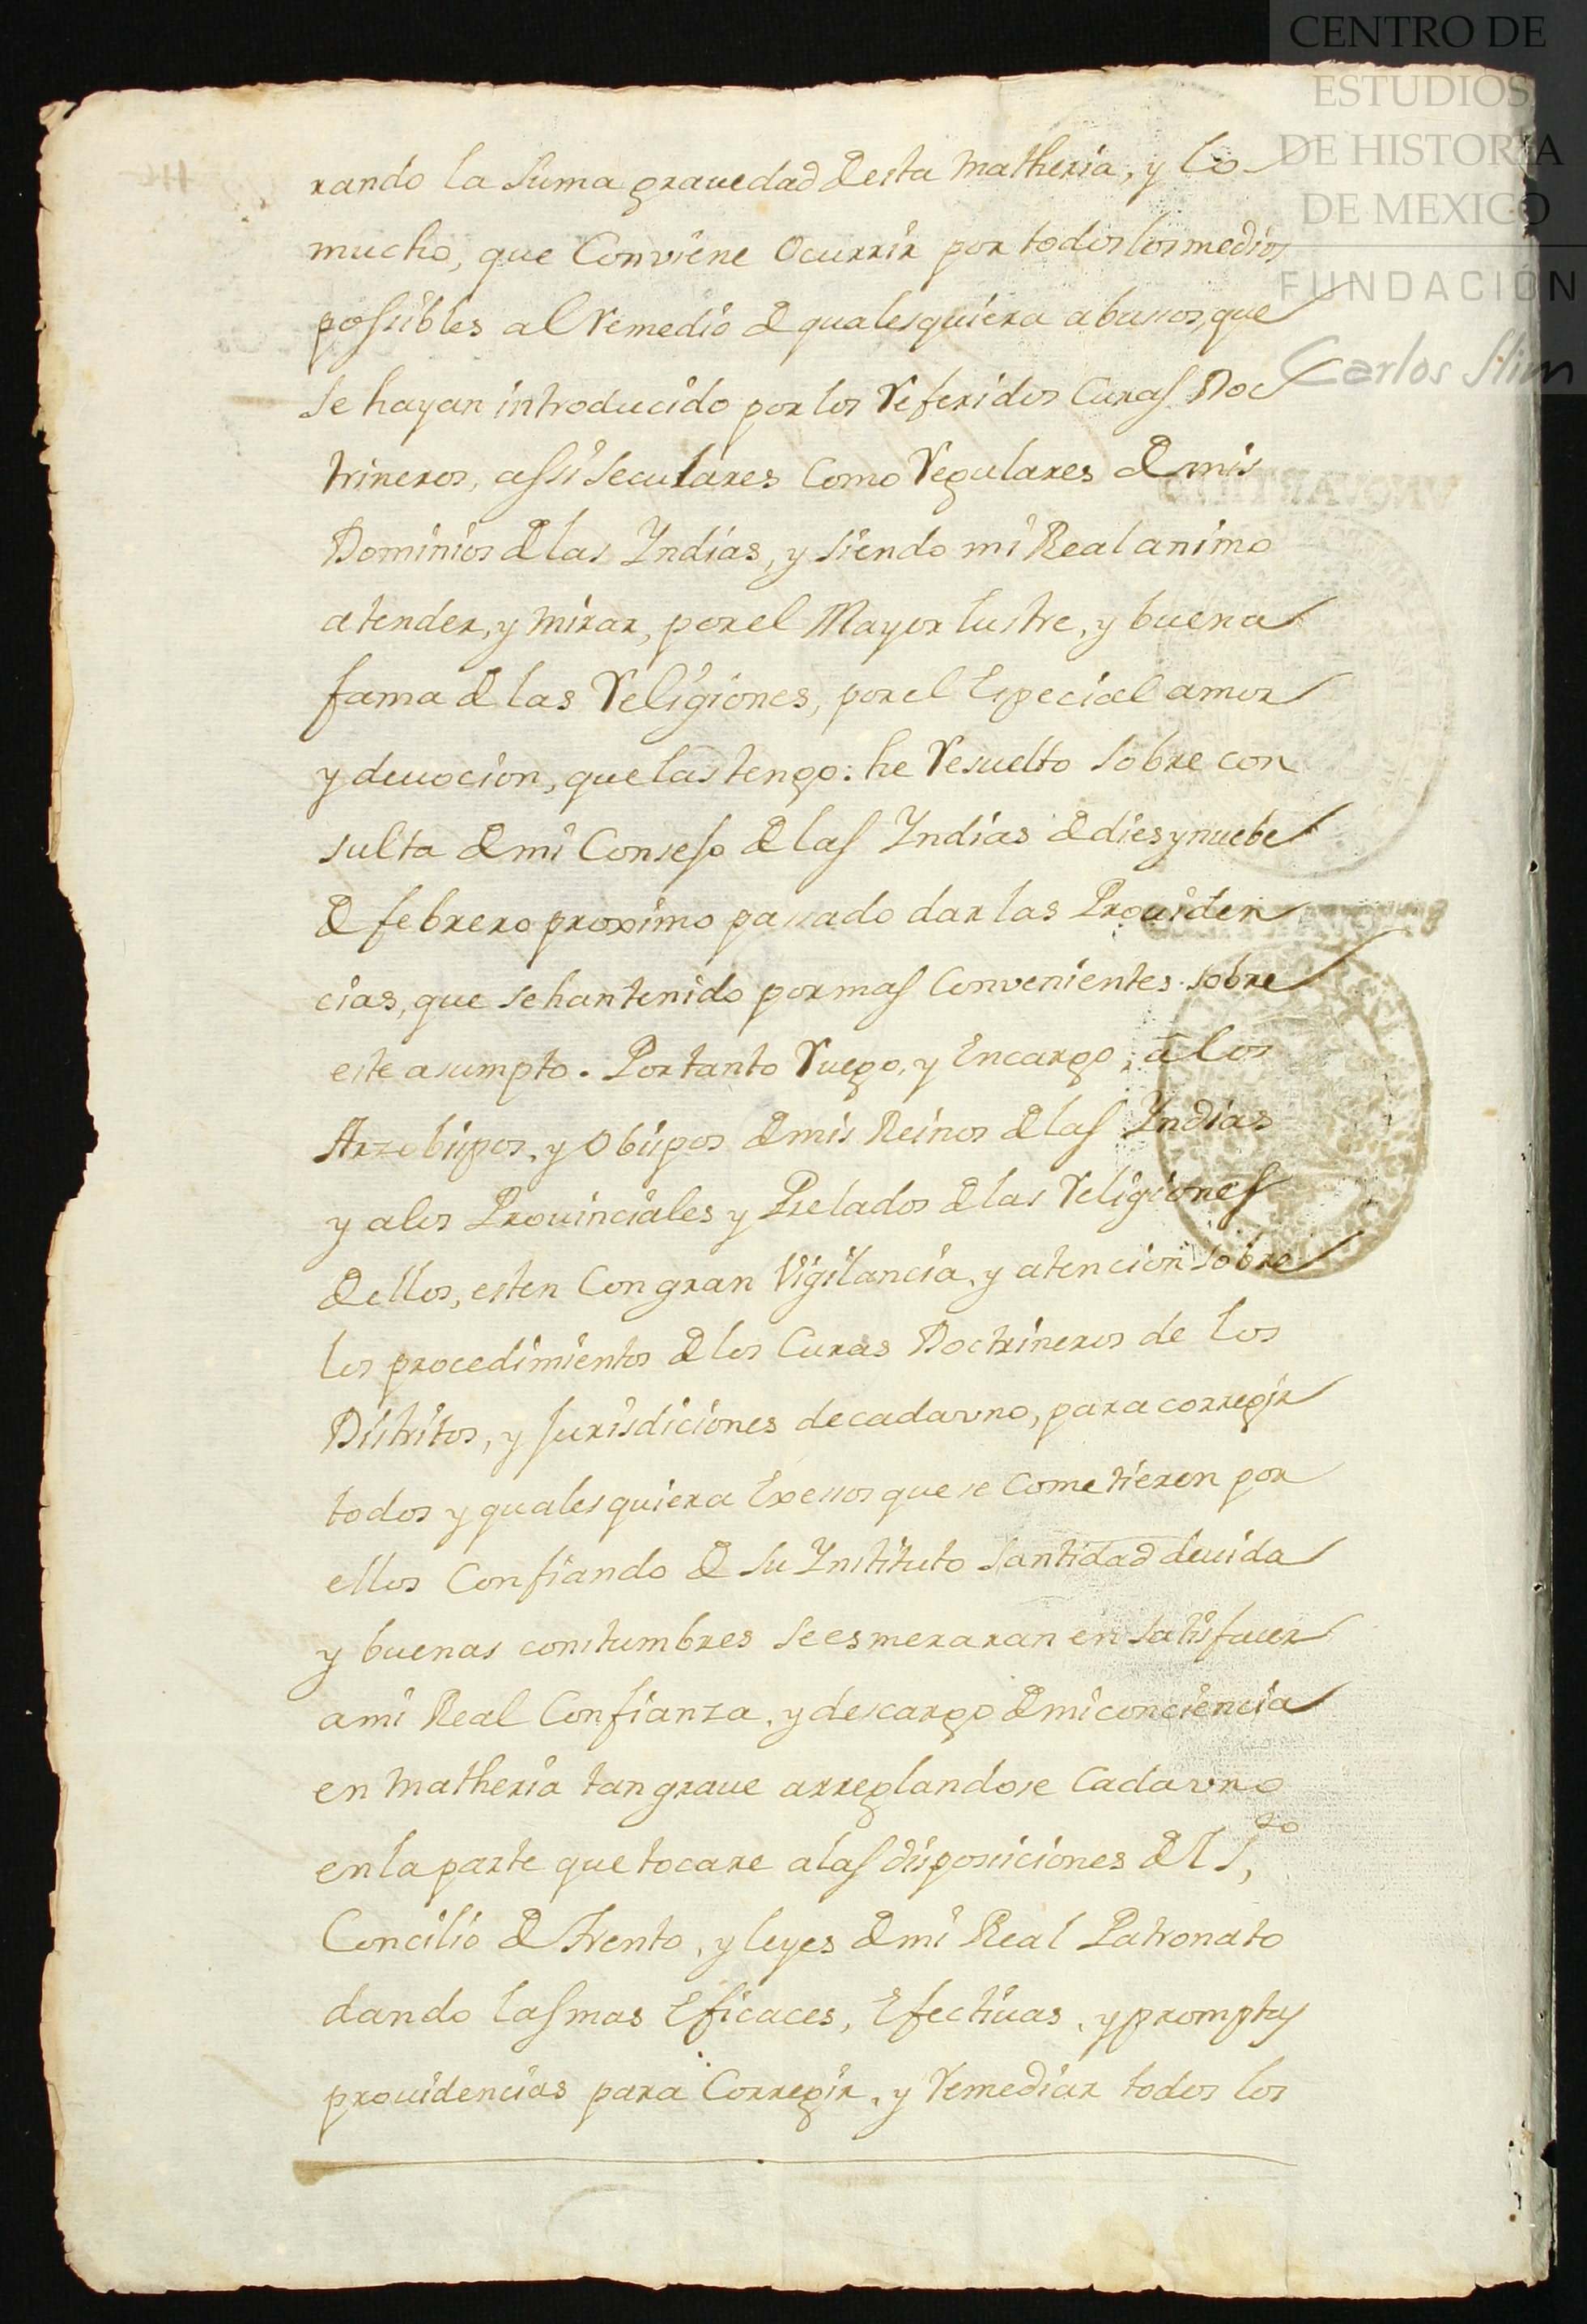 CENTRO DE
ESTUDIOS
DE HISTORIA
DE MEXICO
FUNDACIÓN
Carlos Slim
rando la suma grauedad desta matheria, y lo
mucho, que Conviene Ocurrir por todos los medios
possibles al remedio de qualesquiera abussos, que
se hayan introducido por los referidos Curas Doc
trineros, assi seculares Como regulares de mis
Dominios de las Yndias, y siendo mi Real animo
atender, y mirar, por el Mayor lustre, y buena
fama de las religiones, por el Especial amor
y deuocion, que las tengo: he resuelto sobre con
sulta de mi Consejo de las Yndias de dies y nuebe
de febrero proximo passado dar las Prouiden
cias, que se han tenido por mas Convenientes sobre
este asumpto. Por tanto ruego, y Encargo, a los
Arzobispos, y Obispos de mis Reinos de las Yndias
y a los Prouinciales y Prelados de las religiones
de ellos, esten Con gran Vigilancia, y atencion sobre
los procedimientos de los Curas Doctrineros de los
Distritos, y Jurisdiciones de cada vno, para corregir
todos y qualesquiera Exessos que se Cometieren por
ellos Confiando de su Ynstituto santidad deuida
y buenas constumbres se esmeraran en satisfacer
a mi Real Confianza, y descargo de mi conciencia
en matheria tan graue arreglandose Cada vno
en la parte que tocare a las disposiciones del S,to
Concilio de trento, y leyes de mi Real Patronato
dando las mas Eficaces, Efectiuas, y promptas
prouidencias para Corregir, y remediar todos los